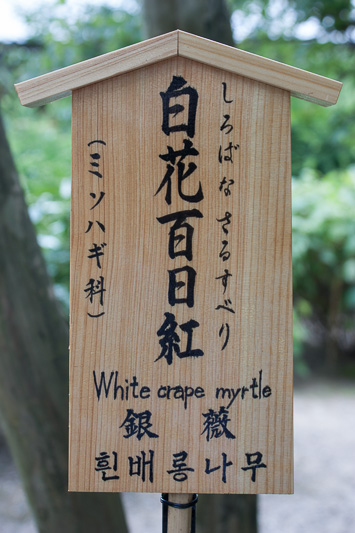 しろばな さるすべり
白花百日紅
(ミソハギ科)
White crape myrtle
銀薇
흰배롱나무